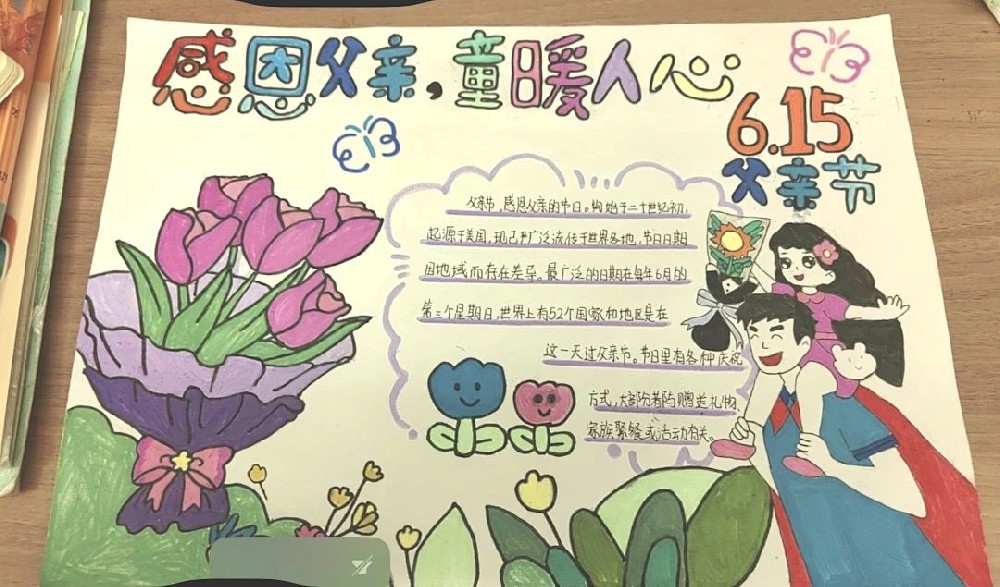 感恩父亲，童暖人心
6.15
父亲节
父亲节，感恩父亲的节日。约始于二十世纪初，
起源于美国，现已广泛流传于世界各地，节日日期
因地域而存在差异。最广泛的日期在每年6月的
第三个星期日，世界上有52个国家和地区是在
这一天过父亲节。节日里有各种庆祝
方式，大部分都与赠送礼物、
家族聚餐或活动有关。